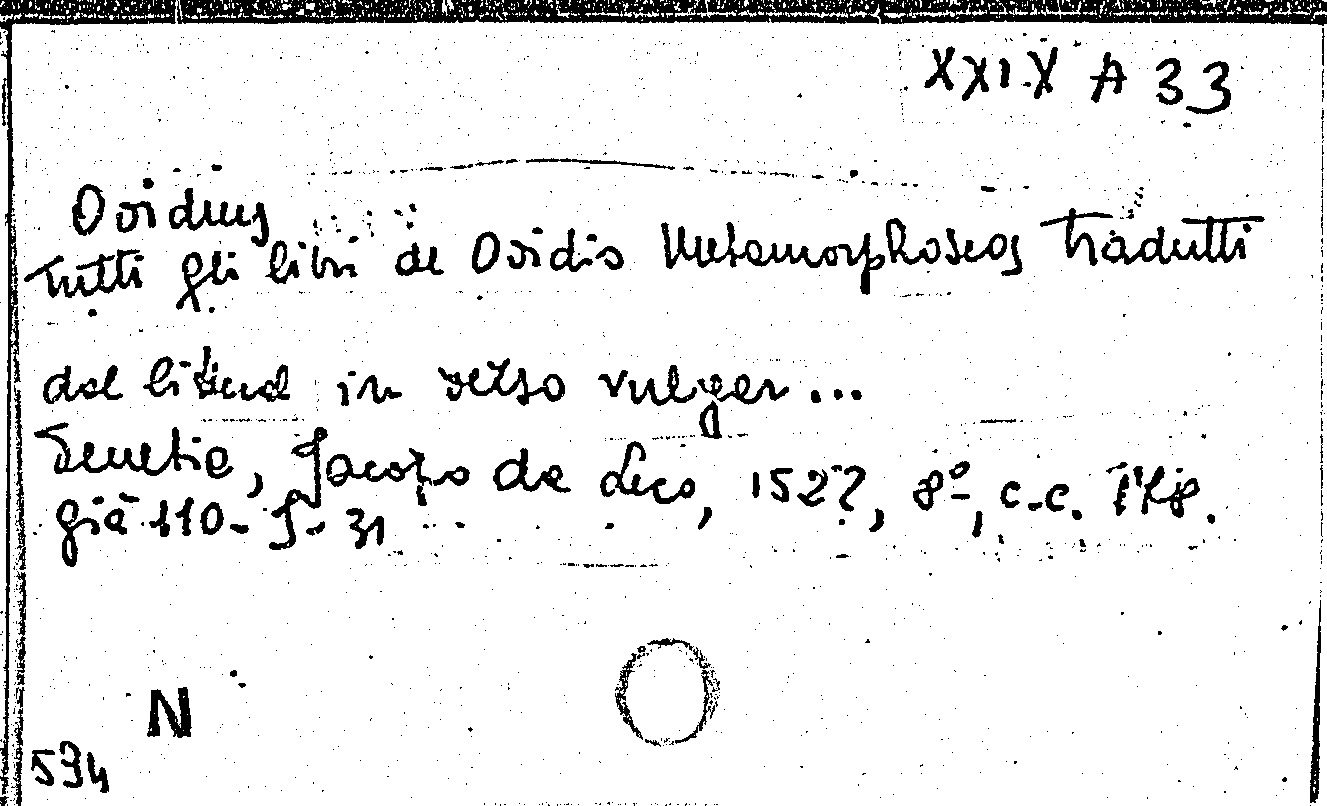 XXIX A 33
Ovidius
Tutti gli libri de Ovidio Metamorphoseos tradutti
dal in verso vulgar...
Venetia, Jacopo da Leco, 1522, 8º, c.c.
già 110-J-31
N
534